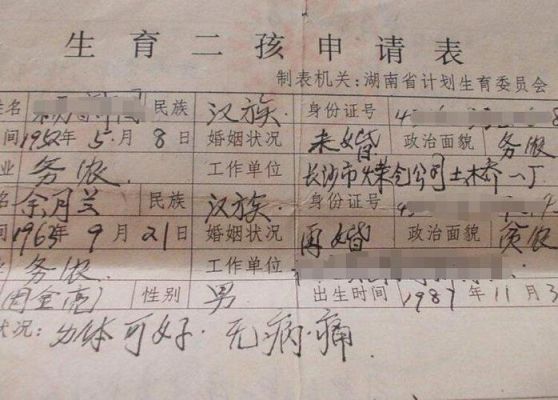 生育二孩申请表
制表机关:湖南省计划生育委员会
姓名 民族 汉族 身份证号 4 8
间 1952年5月8日 婚姻状况 未婚 政治面貌 务农
业 务农 工作单位 长沙市 公司土木 一丁
名 余月兰 民族 汉族 身份证号 4
间 1963年9月21日 婚姻状况 再婚 政治面貌 贫农
务农 工作单位
(周金亮) 性别 男 出生时间 1987年11月3
状况: 体可好.无病.痛